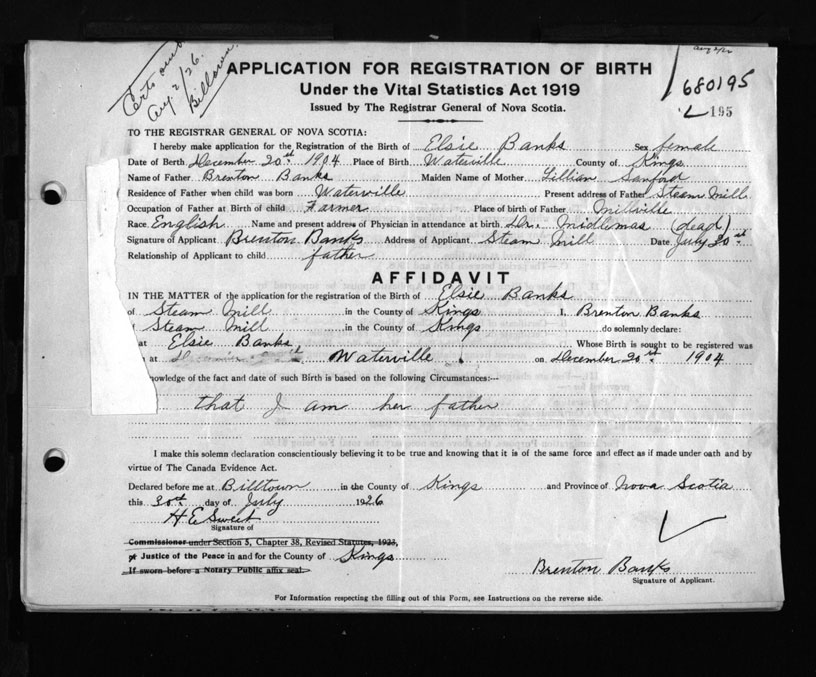 Aug 2/26
Certs
Aug 2/26.
Billtown
APPLICATION FOR REGISTRATION OF BIRTH
680195
Under the Vital Statistics Act 1919
195
Issued by The Registrar General of Nova Scotia.
TO THE REGISTRAR GENERAL OF NOVA SCOTIA:
I hereby make application for the Registration of the Birth of Elsie Banks Sex female
Date of Berth December 20st 1904 Place of Birth Waterville County of Kings
Name of Father Brenton Banks Maiden Name of Mother Lillian Sanford
Residence of Father when child was born Waterville Present address of Father Steam Mill
Occupation of Father at Birth of child Farmer Place of birth of Father Millville
Race English Name and present address of Physician in attendance at birth Dr. Midlemas (dead)
Signature of Applicant Brenton Banks Address of Applicant Steam Mill Date July 30st
Relationship of Applicant to child father
AFFIDAVIT
IN THE MATTER of the application for the registration of the Birth of Elsie Banks
of Steam Mill in the County of Kings I, Brenton Banks
Steam Mill in the County of Kings do solemnly declare:
at Elsie Banks Whose Birth is sought to be registered was
at Waterville on December 20st 1904
owledge of the fact and date of such Birth is based on the following Circumstances:—
that I am her father
I make this solemn declaration conscientiously believing it to be true and knowing that it is of the same force and effect as if made under oath and by
virtue of The Canada Evidence Act.
Declared before me at Billtown in the County of Kings and Province of Nova Scotia
this 30st day of July 1926
H E Sweet
Signature of
Commissioner under Section 5, Chapter 38, Revised Statutes, 1923,
Justice of the Peace in and for the County of Kings
If sworn before a Notary Public affix seal.
Brenton Banks
Signature of Applicant.
For Information respecting the filling out of this Form, see Instructions on the reverse side.